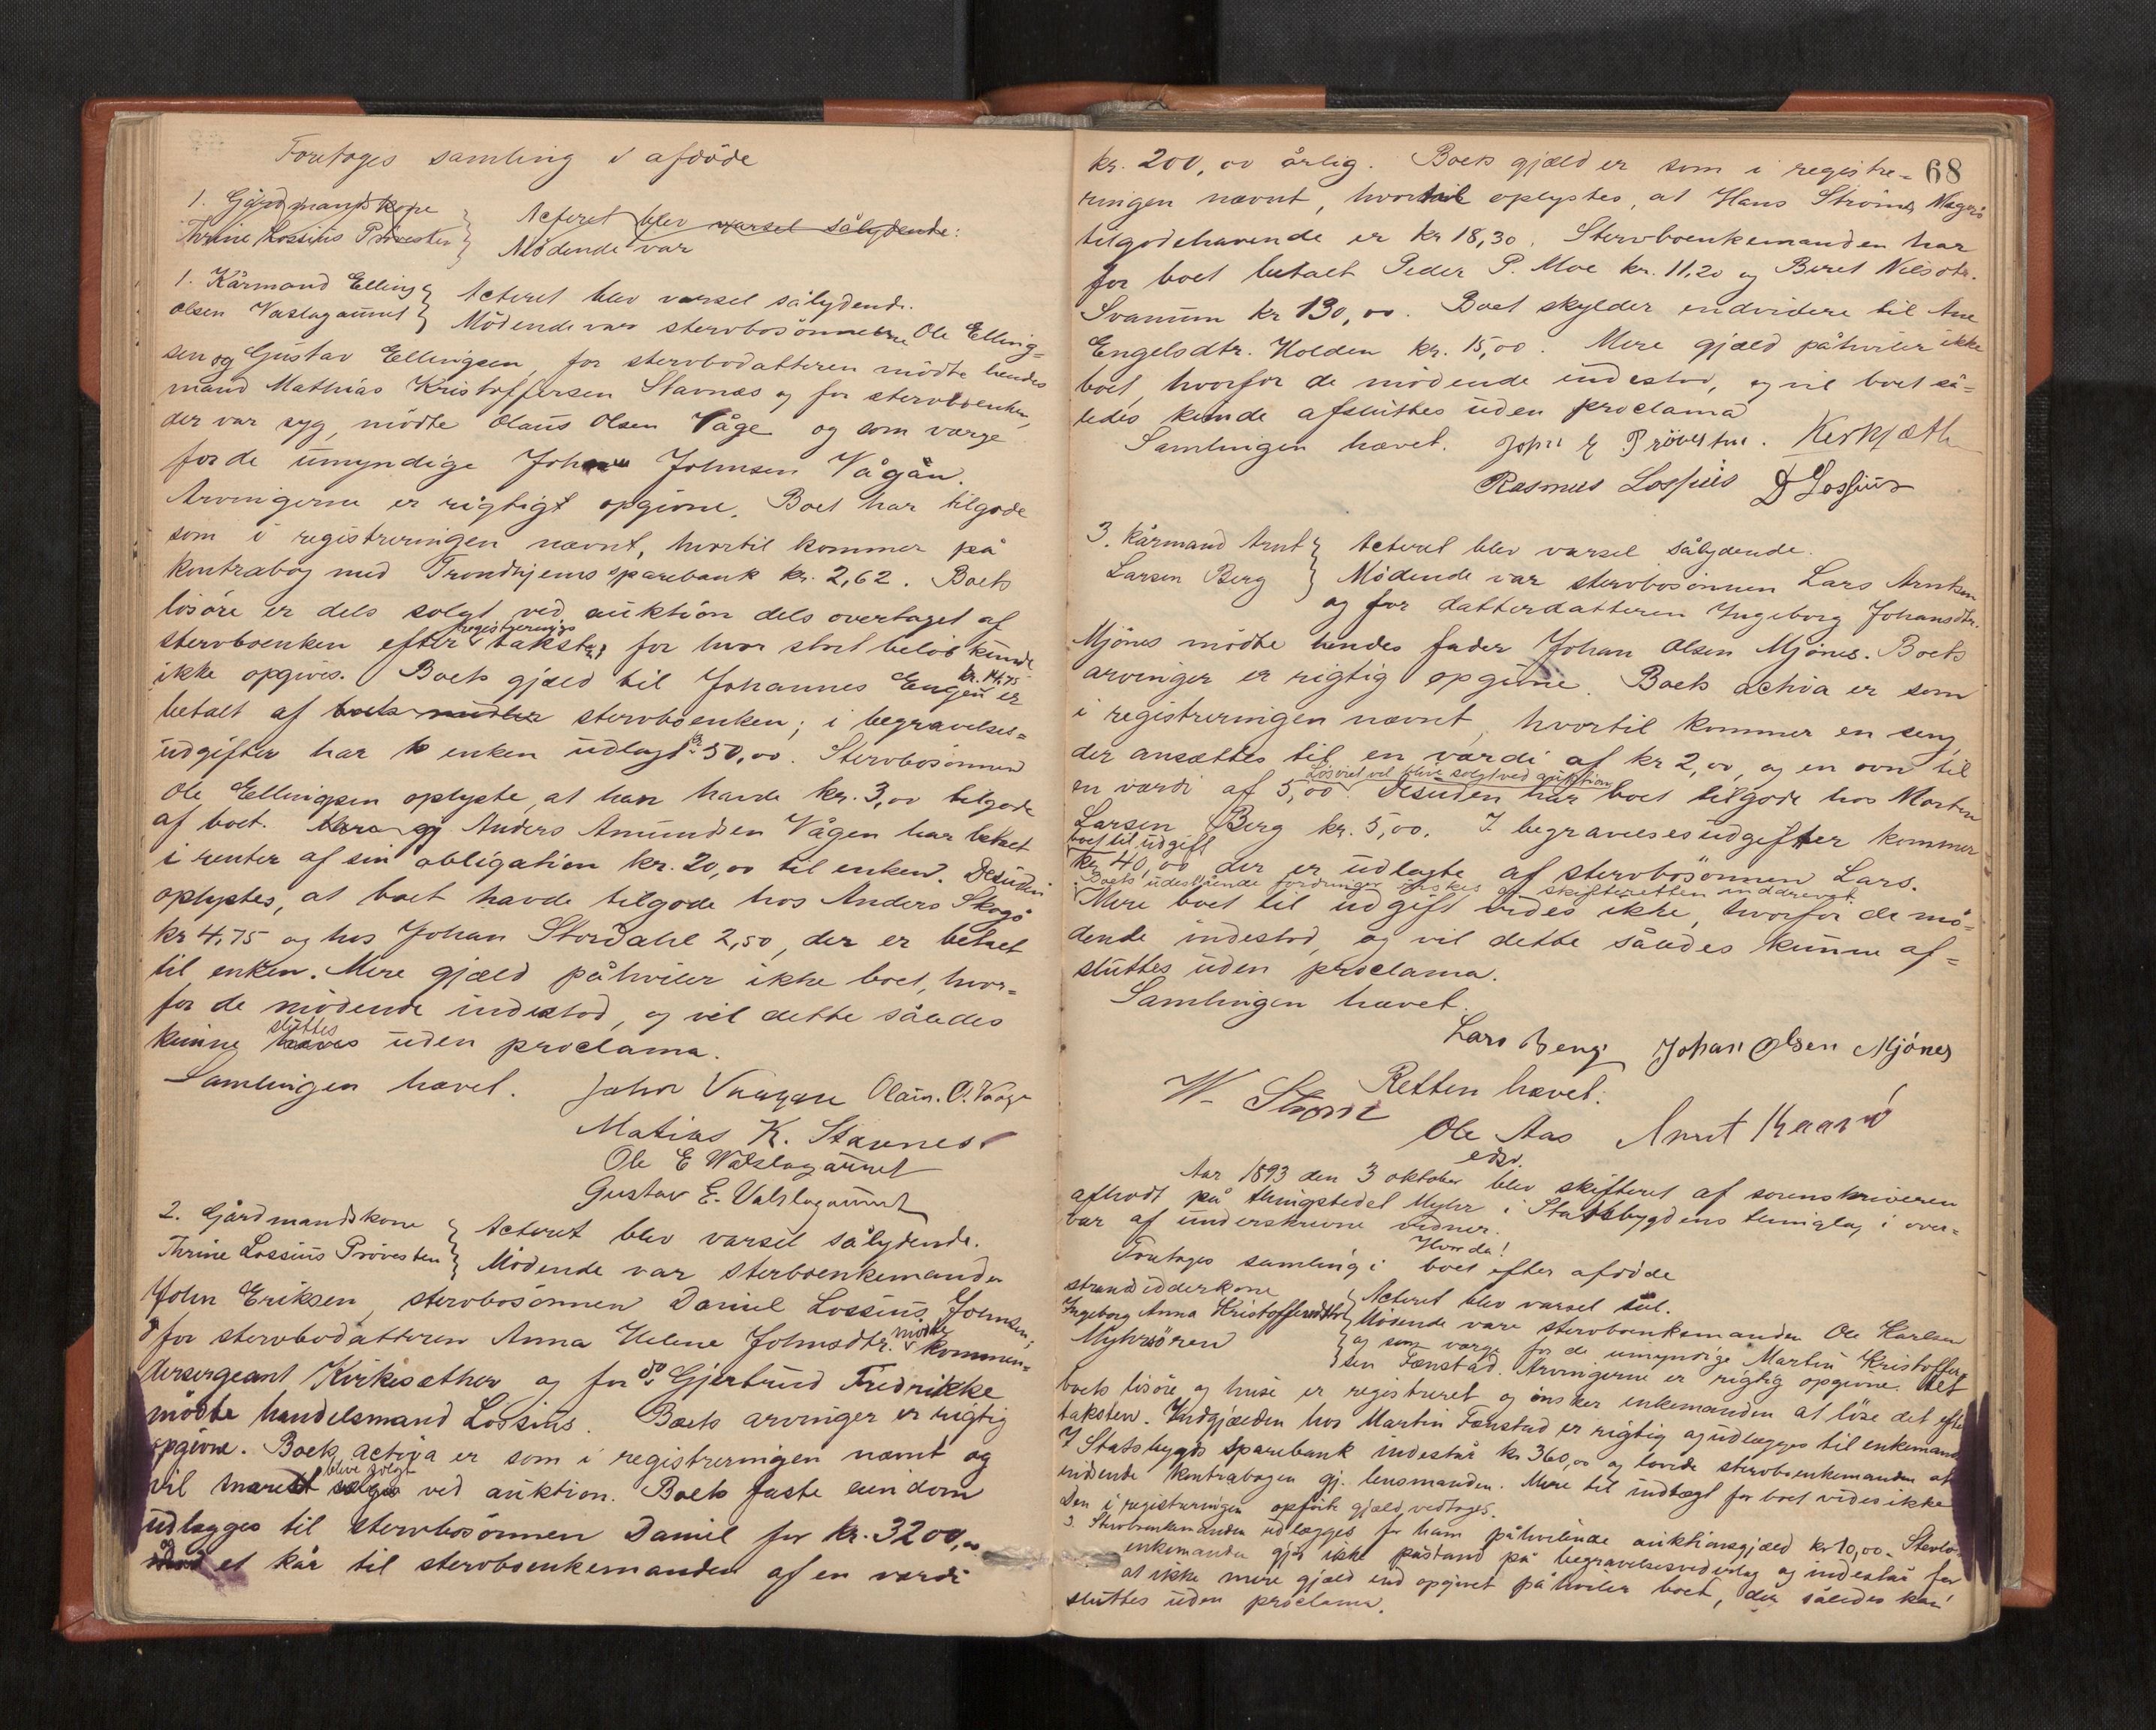 Foretoges samling i afdöde
1. Gårdmandskone
Thrine Lossius Prövesten } Acteret blev varsel sålydende:
Mödende var
1. Kårmand Elling
Olsen Vaslagaunet } Acteret blev varsel sålydende.
Mödende var stervbosönnerne Ole Elling=
sen og Gustav Ellingsen, for stervbodatteren mödte hendes
mand Mathias Kristoffersen Stavnæs og for stervboenken,
der var syg, mödte Olaus Olsen Våge og som værge
for de umyndige John Johnsen Vågan.
Arvingerne er rigtigt opgivne. Boet har tilgode
som i registreringen nævnt, hvortil kommer på
kontrabog med Trondhjems sparebank kr. 2,62. Boets
lösöre er dels solgt ved auktion dels overtaget af
stervboenken efter registrerings takster, for hvor stort belöb kunde
ikke opgives. Boets gjæld til Johannes Engen kr. 14.75 er
betalt af boets midler stervboenken; i begravelses=
udgifter har enken udlagt kr 50,00. Stervbosönnen
Ole Ellingsen oplyste, at han havde kr. 3,00 tilgode
af boet. Anders Amundsen Vågen har betalt
i renter af sin obligation kr. 20,00 til enken. Desuden
oplystes, at boet havde tilgode hos Anders Skagö
kr 4,75 og hos Johan Stordahl 2,50, der er betalt
til enken. Mere gjæld påhviler ikke boet, hvor=
for de mödende indestod, og vil dette således
kunne sluttes uden proclama.
Samlingen hævet. John Vaagan Olaus. O. Vaage
Matias K. Stavnes
Ole E Walslagaunet
Gustav E. Valslagaunet
2. Gårdmandskone
Thrine Lossius Prövesten } Acteret blev varsel sålydende.
Mödende var sterboenkemanden
John Eriksen, stervbosönnen Daniel Lossius Johnsen,
for stervbodatteren Anna Helene Johnsdtr. mödte kommen=
dersergeant Kirkesæther og for do Gjertrud Fredrikke
mödte handelsmand Lossius. Boets arvinger er rigtig
opgivne. Boets activa er som i registreringen nævnt og
vil blive solgt ved auktion. Boets faste eiendom
udlægges til stervbosönnen Daniel for kr. 3200,00
og et kår til stervboenkemanden af en værdi
68
kr. 200,00 årlig. Boets gjæld er som i registre=
ringen nævnt, hvortil oplystes, at Hans Ströms
tilgodehavende er kr 18,30. Stervboenkemanden har
for boet betalt Peder P. Moe kr. 11.20 og Beret Nilsdtr.
Svanum kr 130,00. Boet skylder endvidere til Ane
Engelsdtr. Holden kr. 15,00. Mere gjæld påhviler ikke
boet, hvorfor de mödende indestod, og vil boet så=
ledes kunde afsluttes uden proclama
Samlingen hævet. John E Prövesten. Kirksæth
Rasmus Lossius D Lossius
3. Kårmand Arnt
Larsen Berg } Acteret blev varsel sålydende.
Mödende var stervbosönnen Lars Arntsen
og for datterdatteren Ingeborg Johansdtr.
Mjönes mödte hendes fader Johan Olsen Mjönes. Boets
arvinger er rigtig opgivne. Boets activa er som
i registreringen nævnt, hvortil kommer en seng,
der ansættes til en værdi af kr 2,00, og en ovn til
en værdi af 5,00. Lösöret vil blive solgt ved auktion Desuden har boet tilgode hos Morten
Larsen Berg kr. 5,00. I begravelsesudgifter kommer
boet til udgift
kr. 40,00 der er udlagte af stervbosönnen Lars.
Boets udestående fordringer önskes af skifteretten inddrevet.
Mere boet til udgift vides ikke, hvorfor de mö=
dende indestod, og vil dette således kunne af=
sluttes uden proclama.
Samlingen hævet.
Lars Berg Johan Olsen Mjönes
Retten hævet.
W. Strom Ole Aas Arnt
edsv.
Aar 1893 den 3 oktober blev skifteret af sorenskriveren
afholdt på thingstedet Myhr i Statsbygdens thinglag i over=
vær af underskrevne vidner.
Hvorda!
Foretoges samling i boet efter afdöde
strandsidderkone
Ingeborg Anna Kristoffersdtr
Myhrsören } Acteret blev varsel tul.
Mödende vare stervboenkemanden Ole Karlsen
og som værge for de umyndige Martin Kristoffer=
sen Fænstad. Arvingerne er rigtig opgivne. Alt
boets lösöre og huse er registreret og önsker enkemanden at löse det efter
taksten. Indgjælden hos Martin Fænstad er rigtig og udlægges til enkemand
I Statsbygds Sparebank indestår kr 360,00 og lovede stervboenkemanden at
indsende kontrabogen gj. lensmanden. Mere til indtægt for boet vides ikke
Den i registreringen opförte gjæld vedtoges.
Stervboenkemanden udlægges for ham påhvilende auktionsgjæld kr 10,00. Stervbo
enkemanden gjör ikke påstand på begravelsesvederlag og indestår for
at ikke mere gjæld end opgivet påhviler boet, der således kan
sluttes uden proclama.